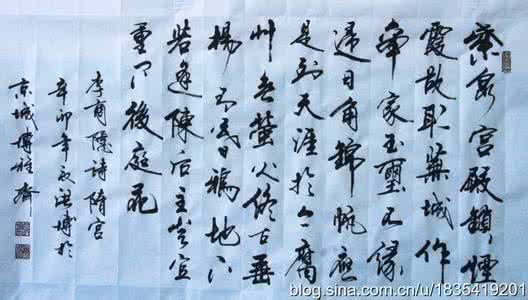 紫泉宮殿鎖煙
霞欲取蕪城作
帝家玉璽不缘
歸日角錦帆應
是到天涯於今腐
艸無螢火終古垂
楊有暮鴉地下
若逢陳后主豈宜
重问後庭花
李商隱詩隋宮
辛卯年洪博於
京城博雅齋
blog.sina.com.cn/u/1835419201